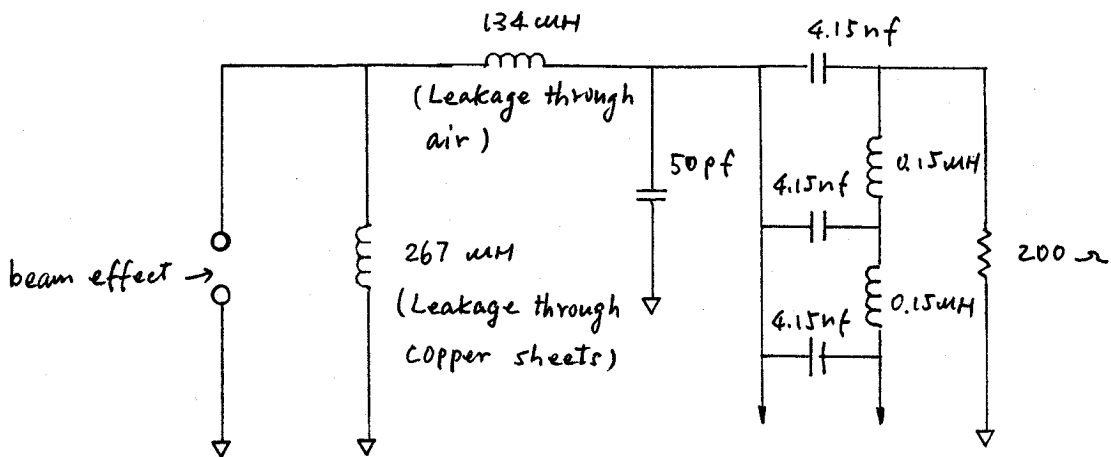 134 mH
4.15nf
(Leakage through
air)
50pf
0.15mH
4.15nf
beam effect →
267 mH
(Leakage through
copper sheets)
200 Ω
0.15mH
4.15nf